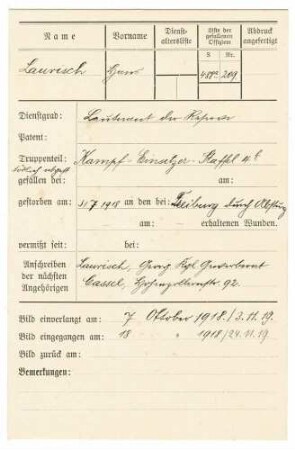 Name Vorname Dienstaltersliste Liste der gefallenen Offiziere Abdruck angefertigt
S Nr.
Laurisch Hans 209
Dienstgrad: Leutnant der Reserve
Patent:
Truppenteil: Kampf-Einsitzer-Staffel 4b
gefallen bei: am:
gestorben am: 31 7 1918 an den bei: Freiburg durch Absturz
am: erhaltenen Wunden.
vermißt seit: bei:
Anschriften der nächsten Angehörigen
Laurisch, Georg Kgl
Cassel, 92.
Bild einverlangt am: 7 Oktober 1918/3.11.19.
Bild eingegangen am: 18 " 1918/24.11.19
Bild zurück am:
Bemerkungen: